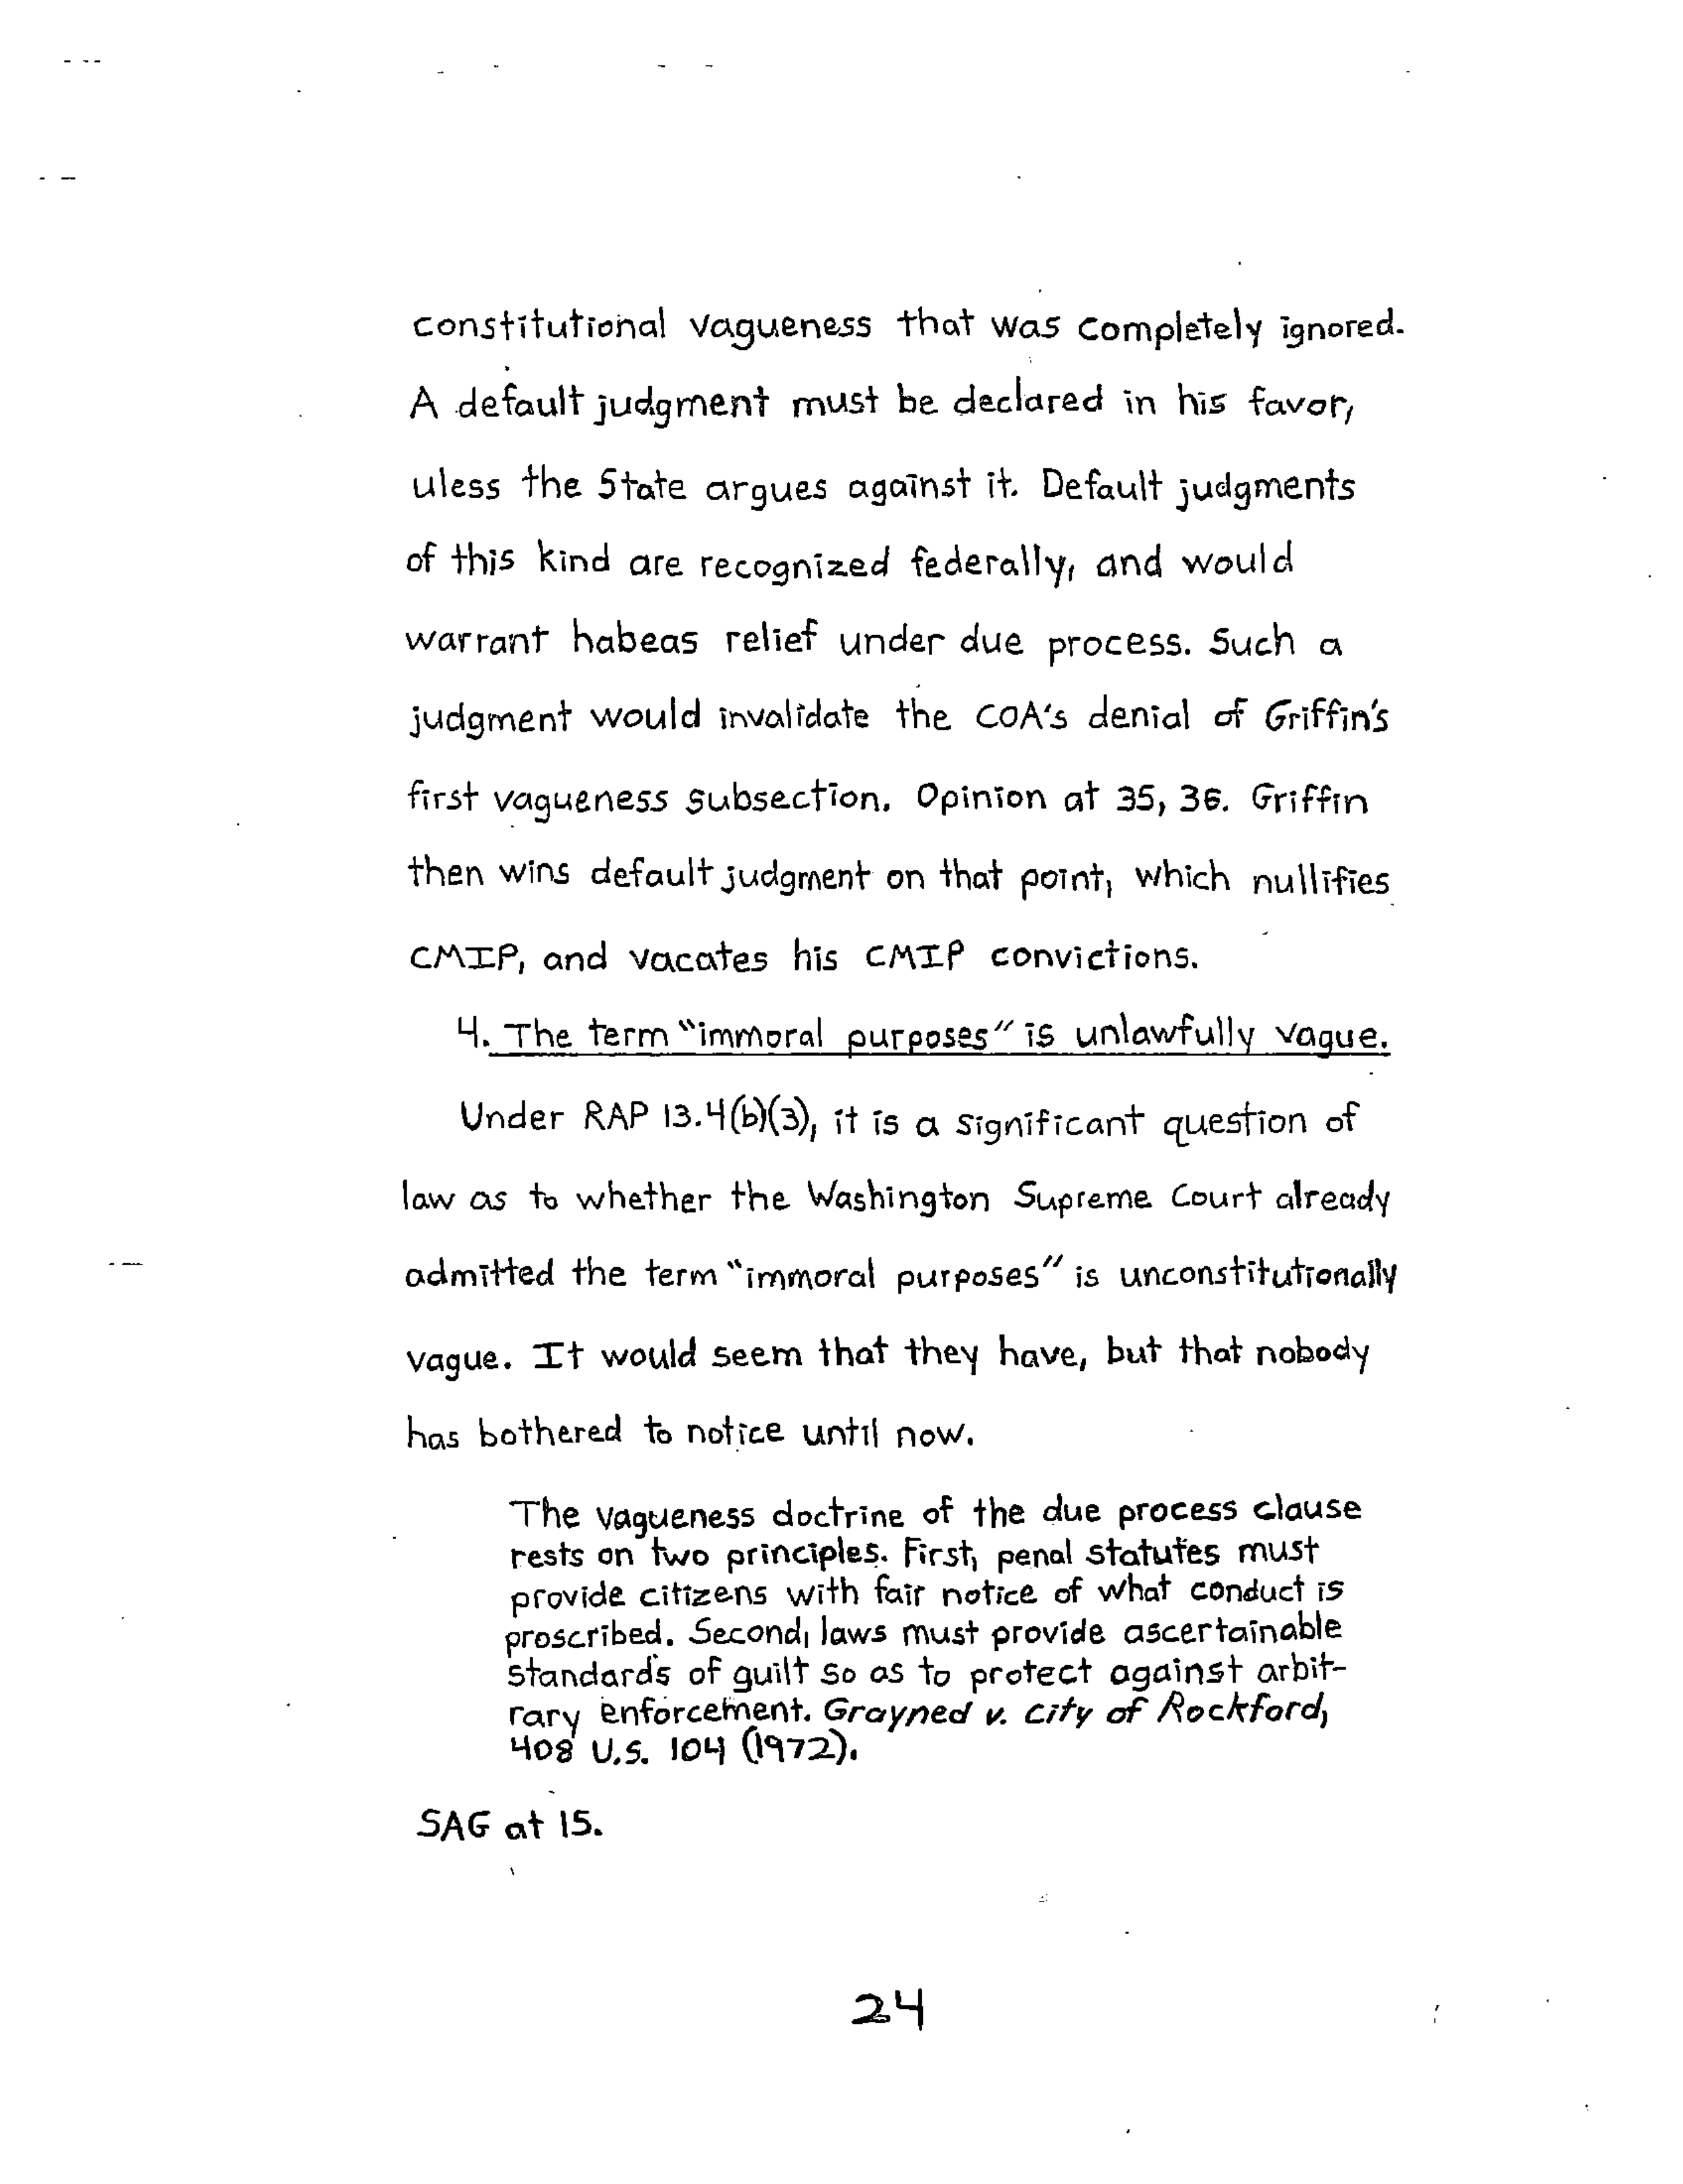 constitutional vagueness that was completely ignored.
A default judgment must be declared in his favor,
uless the State argues against it. Default judgments
of this kind are recognized federally, and would
warrant habeas relief under due process. Such a
judgment would invalidate the COA's denial of Griffin's
first vagueness subsection. Opinion at 35, 36. Griffin
then wins default judgment on that point, which nullifies
CMIP, and vacates his CMIP convictions.
4. The term "immoral purposes" is unlawfully vague.
Under RAP 13.4(b)(3), it is a significant question of
law as to whether the Washington Supreme Court already
admitted the term "immoral purposes" is unconstitutionally
vague. It would seem that they have, but that nobody
has bothered to notice until now.
The vagueness doctrine of the due process clause
rests on two principles. First, penal statutes must
provide citizens with fair notice of what conduct is
proscribed. Second, laws must provide ascertainable
standards of guilt so as to protect against arbit-
rary enforcement. Grayned v. City of Rockford,
408 U.S. 104 (1972).
SAG at 15.
24